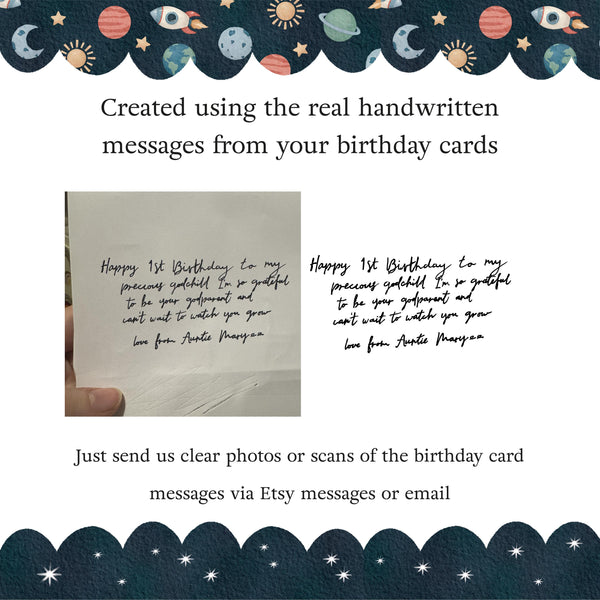 Created using the real handwritten
messages from your birthday cards
Happy 1st Birthday to my
precious godchild I'm so grateful
to be your godparent and
can't wait to watch you grow
love from Auntie Mary xx
Happy 1st Birthday to my
precious godchild I'm so grateful
to be your godparent and
can't wait to watch you grow
love from Auntie Mary xx
Just send us clear photos or scans of the birthday card
messages via Etsy messages or email